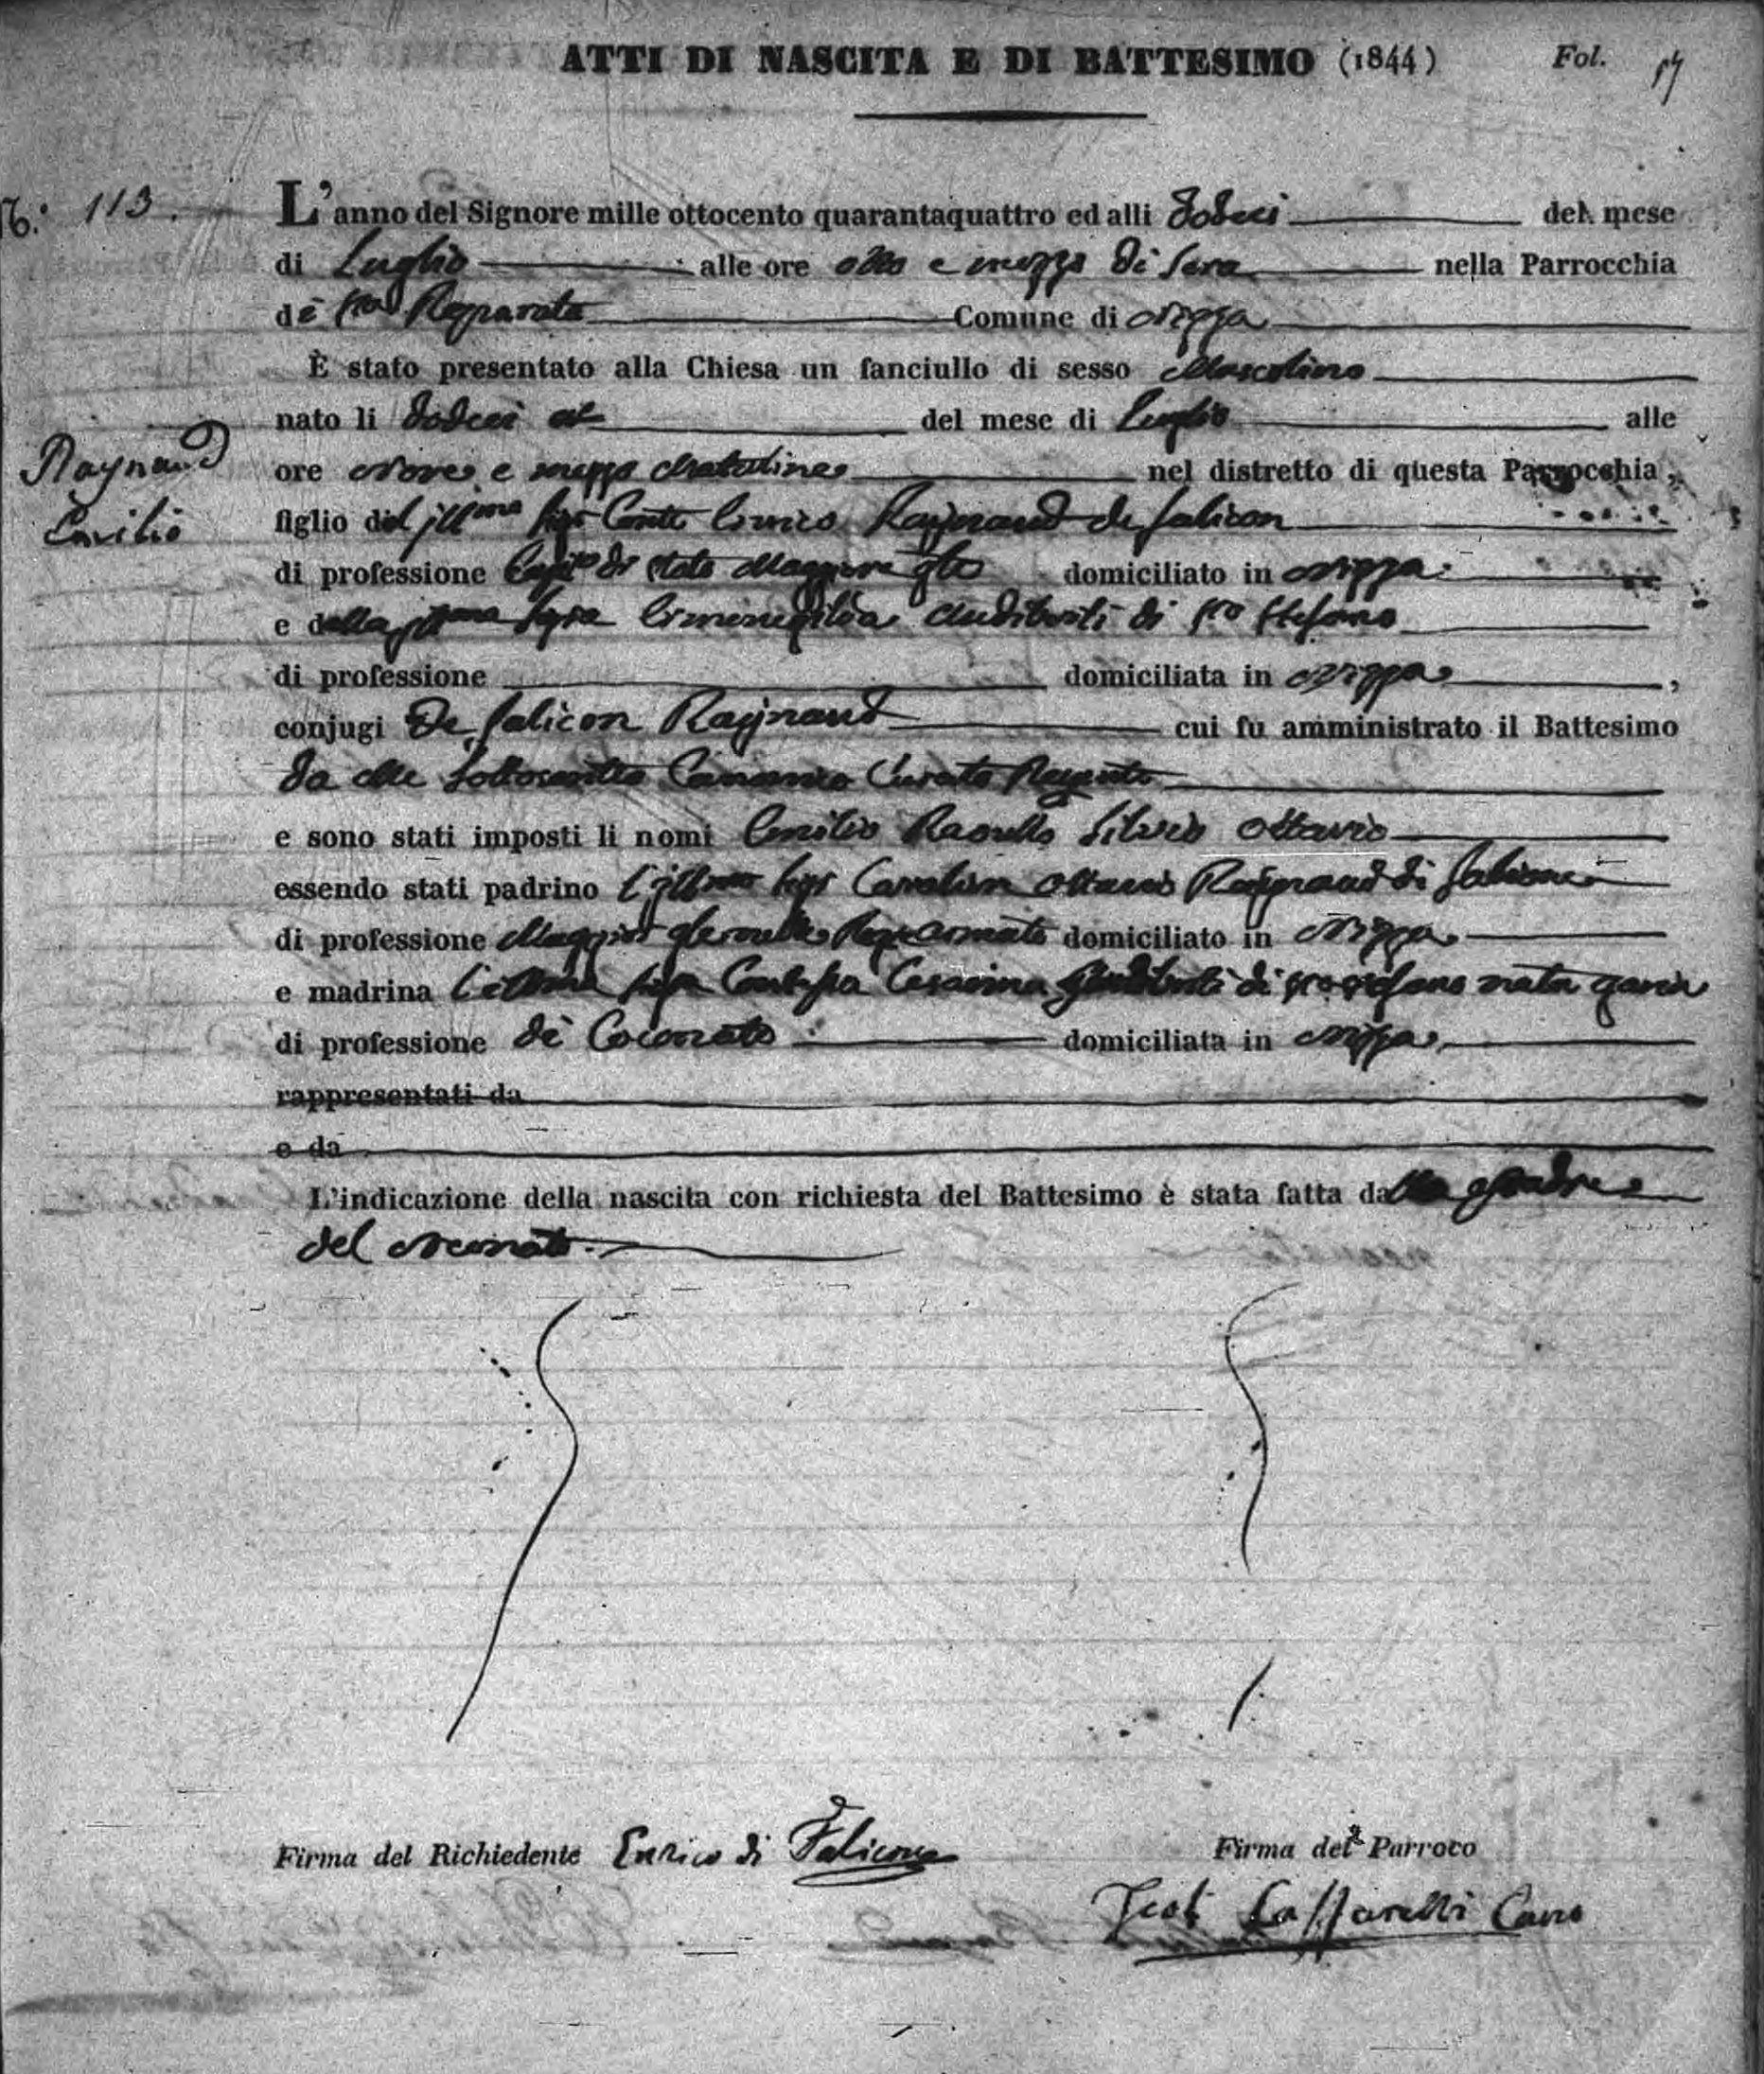 ATTI DI NASCITA E DI BATTESIMO (1844) Fol. 57
N.° 113.
L'anno del Signore mille ottocento quarantaquattro ed alli dodeci del mese
di Luglio alle ore otto e mezza di sera nella Parrocchia
di Sta Reparata Comune di Nizza
È stato presentato alla Chiesa un fanciullo di sesso Mascolino
nato li dodeci del mese di Luglio alle
Raynaud
Emilio
ore Nove e mezza Matutine nel distretto di questa Parrocchia,
figlio del Illmo Sigr Conte Enrico Raynaud de Falicon
di professione Capno di Stato Maggiore Gle domiciliato in Nizza
e della Illma Sigra Ermenegilda Audiberti di Sto Stefano
di professione domiciliata in Nizza,
conjugi De Falicon Raynaud cui fu amministrato il Battesimo
da Me sottoscritto Canonico Curato Reggente
e sono stati imposti li nomi Emilio Raoullo Silvio Ottavio
essendo stati padrino l'Illmo Sigr Cavalier Ottavio Raynaud di Falicone
di professione Maggior Generale Regie armate domiciliato in Nizza
e madrina l'Illma Sigra Contessa Cesarina Audiberti di Sto Stefano nata
di professione de Coconato domiciliata in Nizza
rappresentati da
e da
L'indicazione della nascita con richiesta del Battesimo è stata fatta dal Padre
del Neonato.
Firma del Richiedente Enrico di Falicone
Firma del Parroco
Caffarelli Cano